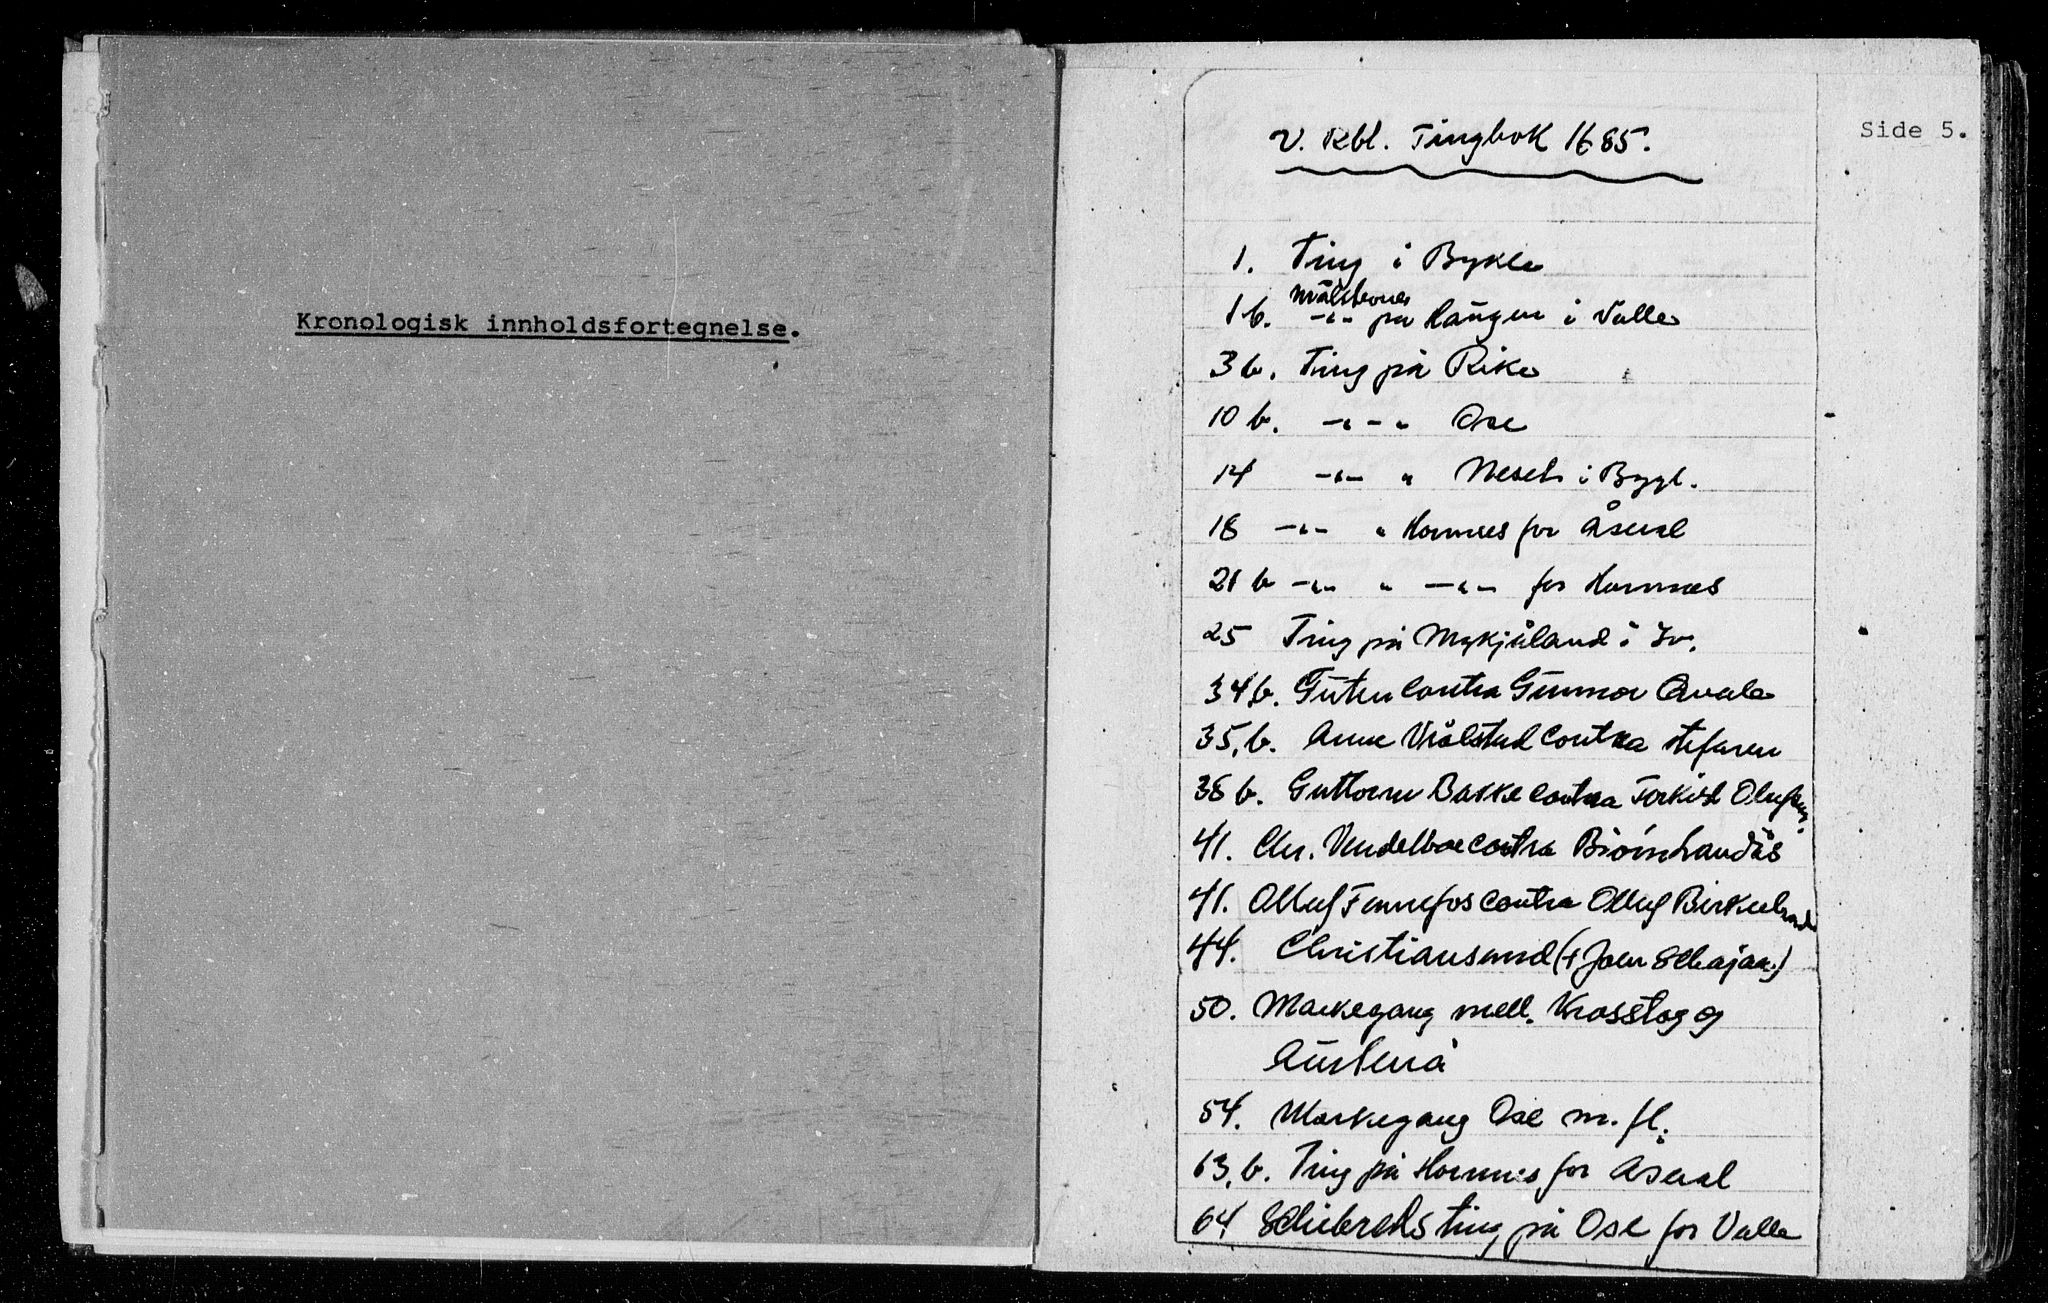 Kronologisk innholdsfortegnelse.
Side 5.
V. Rbl. Tingbok 1685.
1. Ting i Bykle
1 b. -"- på Haugen i Valle
3 b. Ting på Rike
10 b. -"- " Ose
14 -"- " Neset i Bygl.
18 -"- " Hornnes for Åseral
21 b -"- " -"- for Hornnes
25 Ting på Mykjåland i Iv.
34,b. Futen contra Gunnor Qvale
35,b. Anne Viålstad contra
38 b. Guttorm Bakke contra Torkild Olufsen.
41. Chr. Vendelboe contra Biørn Landås
41. Olluf Fennefos contra Olluf Birkeland
44. Christiansand (+ Joen
50. Markegang mell. Krosslog og
Austenå
54. Markegang Ose m. fl.
63,b. Ting på Hornnes for Aseral
64 Schibreds ting på Ose for Valle